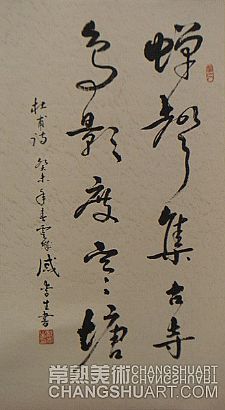 蝉聲集古寺
鸟影度寒塘
杜甫诗 癸未年春 生書
常熟美術 CHANGSHUART
CHANGSHUART.COM